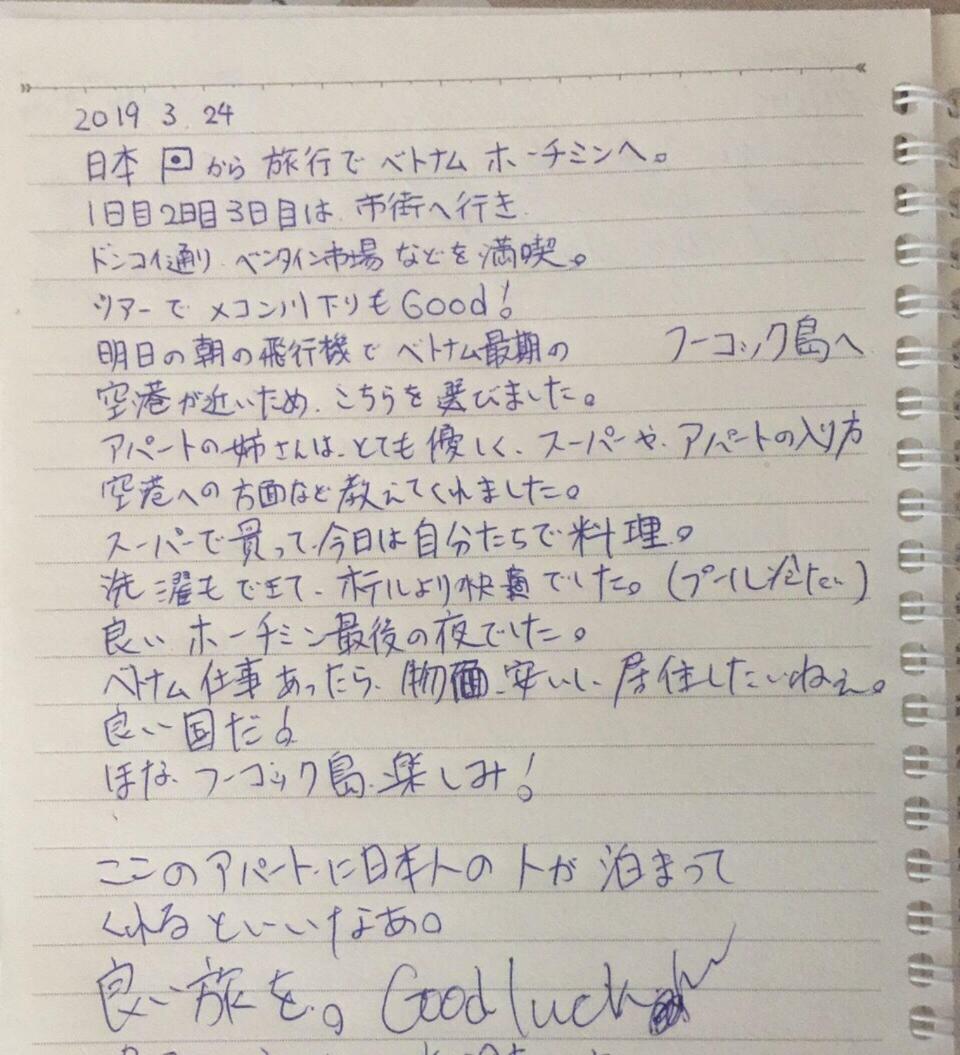 2019 3. 24
日本 から 旅行で ベトナム ホーチミンへ。
1日目2日目3日目は 市街へ行き
ドンコイ通り ベンタイン市場 などを 満喫。
ツアーで メコン川下りも Good!
明日の朝の飛行機で ベトナム最期の フーコック島へ
空港が近いため、こちらを選びました。
アパートの姉さんは、とても優しく、スーパーや、アパートの入り方
空港への方面など教えてくれました。
スーパーで買って、今日は自分たちで料理。
洗濯もできて、ホテルより快適でした。(プール冷たい)
良いホーチミン最後の夜でした。
ベトナム仕事あったら、物価安いし、居住したいねぇ。
良い国だ!
ほな、フーコック島、楽しみ!
ここのアパートに日本人の人が泊まって
くれるといいなあ。
良い旅を。Good luck